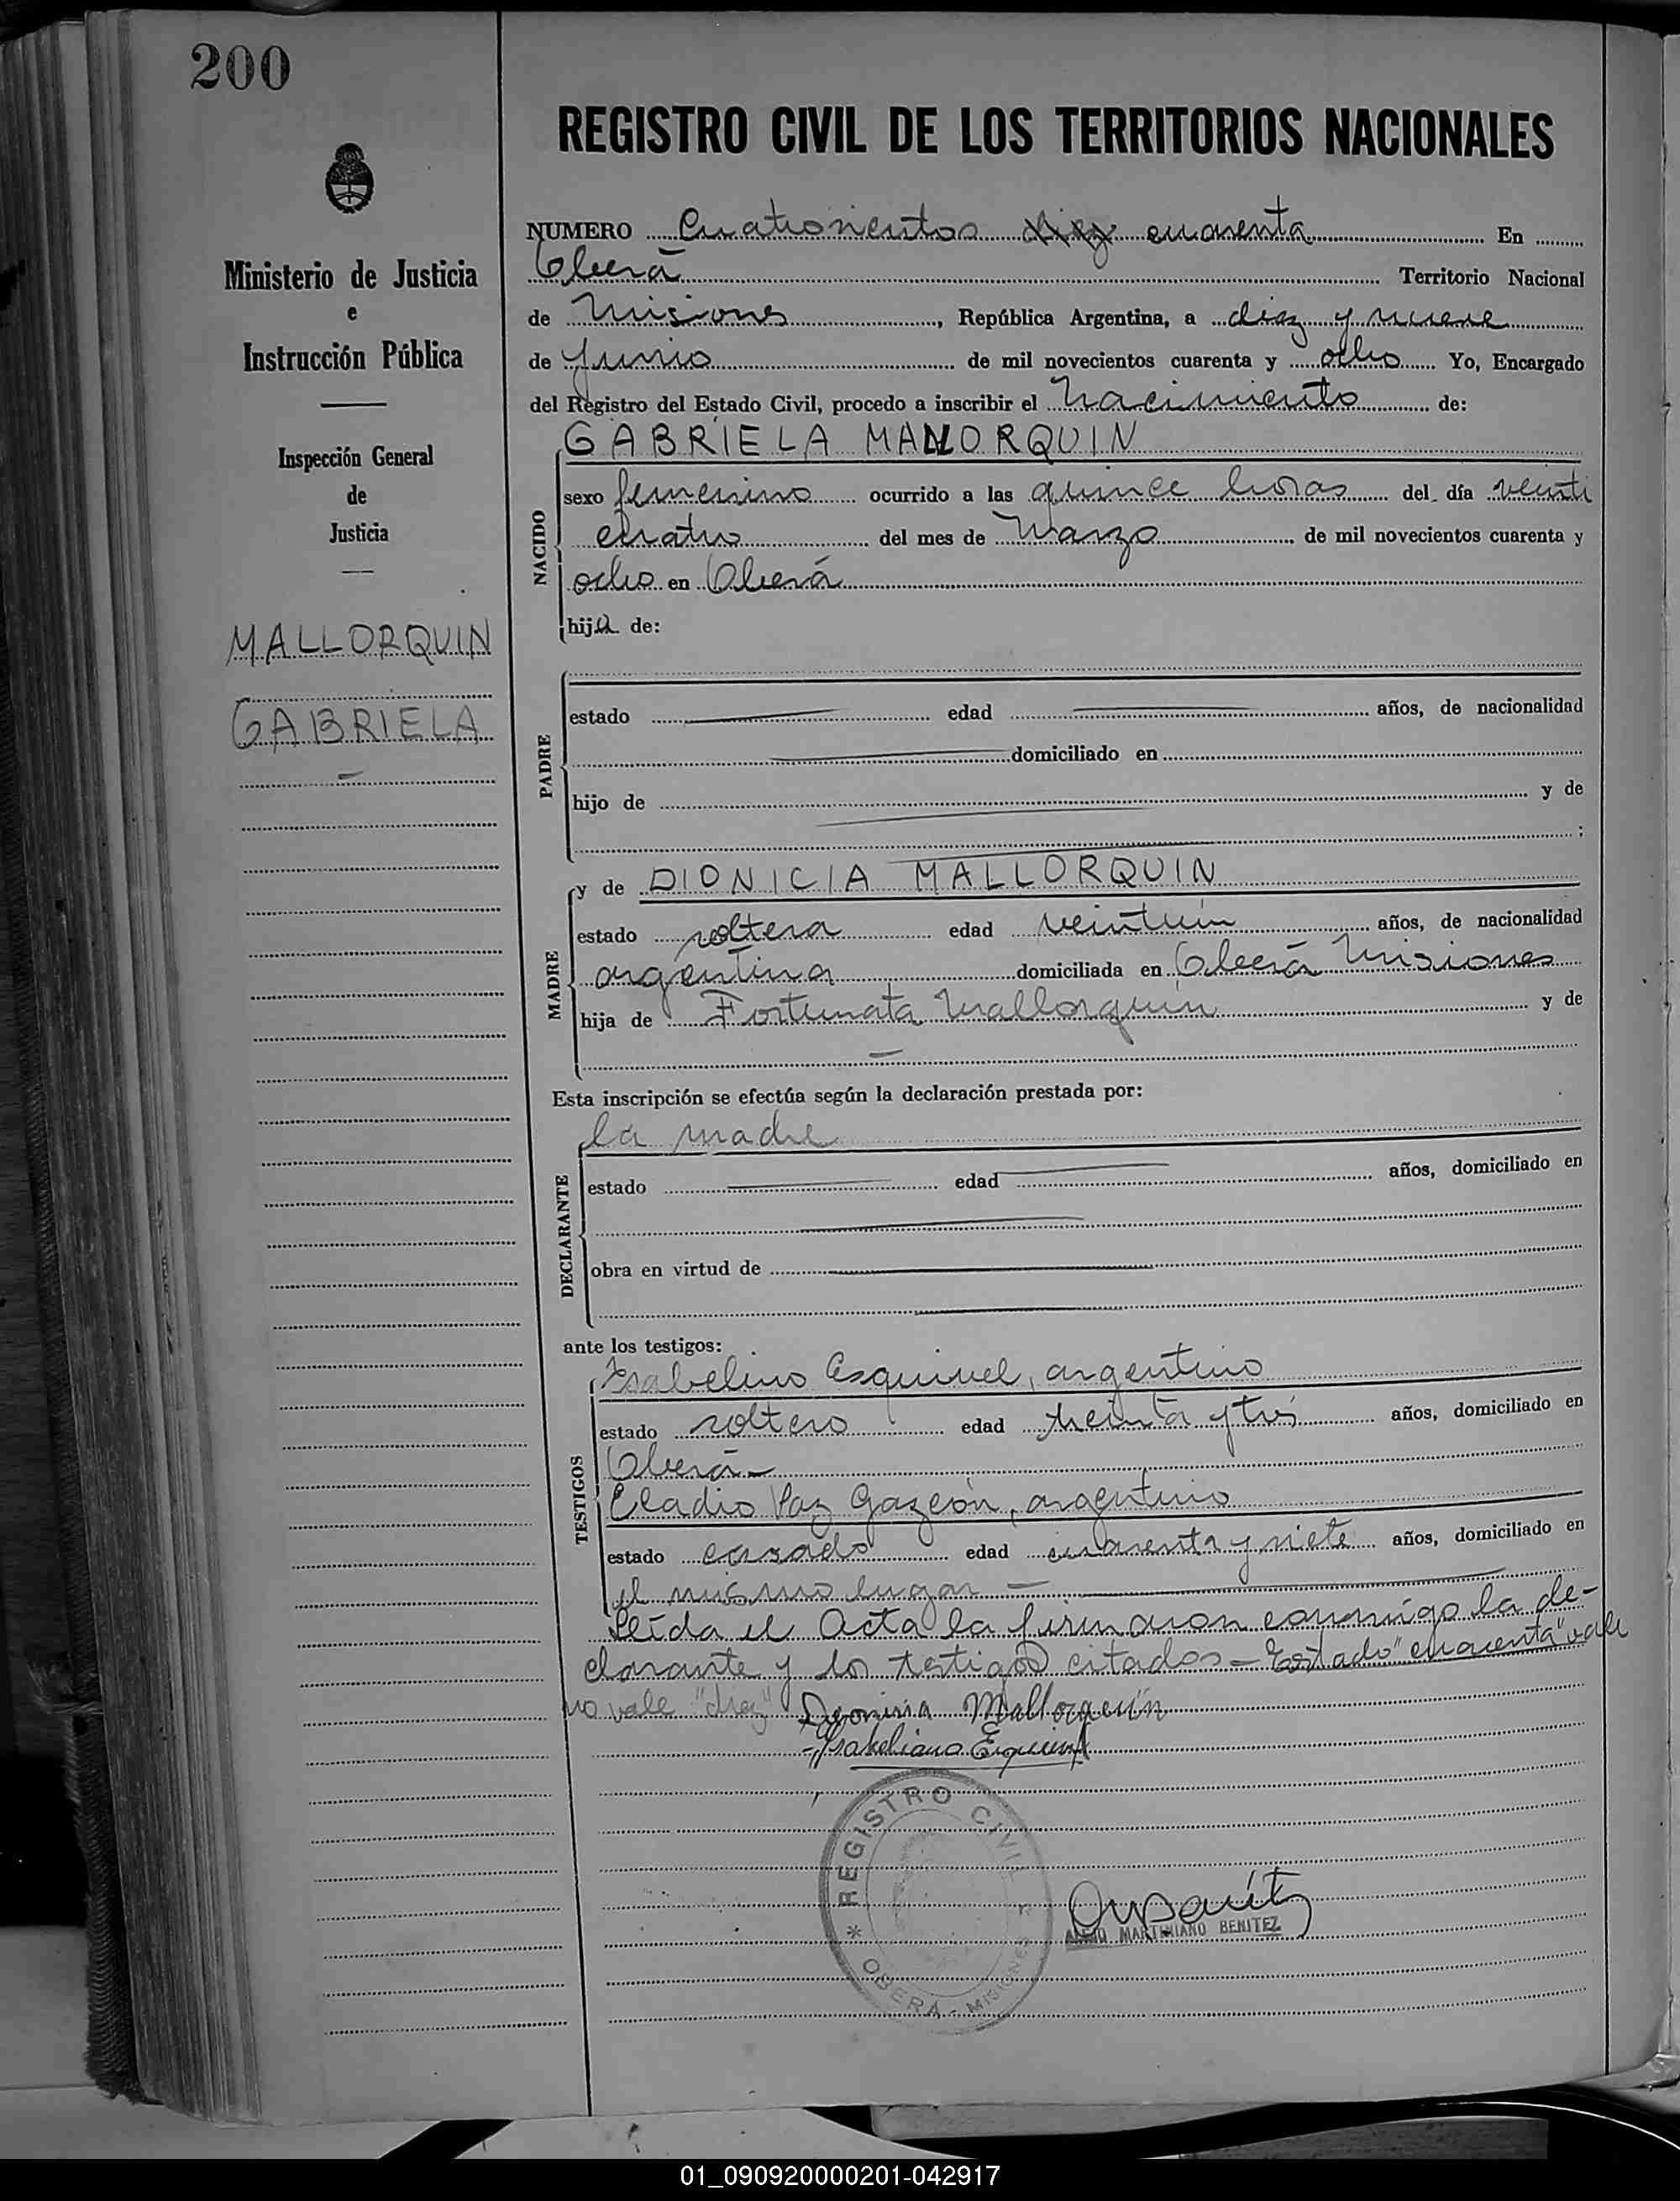 200
REGISTRO CIVIL DE LOS TERRITORIOS NACIONALES
Ministerio de Justicia
e
Instrucción Pública
Inspección General
de
Justicia
MALLORQUIN
GABRIELA
NUMERO Cuatrocientos diez cuarenta En
Oberá Territorio Nacional
de Misiones, República Argentina, a diez y nueve
de Junio de mil novecientos cuarenta y ocho Yo, Encargado
del Registro del Estado Civil, procedo a inscribir el Nacimiento de:
GABRIELA MALLORQUIN
NACIDO
sexo femenino ocurrido a las quince horas del día veinti
cuatro del mes de Marzo de mil novecientos cuarenta y
ocho en Oberá
hija de:
PADRE
estado edad años, de nacionalidad
domiciliado en
hijo de y de
;
MADRE
y de DIONICIA MALLORQUIN
estado soltera edad veintiun años, de nacionalidad
argentina domiciliada en Oberá Misiones
hija de Fortunata Mallorquin y de
Esta inscripción se efectúa según la declaración prestada por:
DECLARANTE
la madre
estado edad años, domiciliado en
obra en virtud de
ante los testigos:
TESTIGOS
Isabelino Esquivel, argentino
estado soltero edad treinta y tres años, domiciliado en
Oberá-
Eladio Paz, argentino
estado casado edad cuarenta y siete años, domiciliado en
el mismo lugar -
Leída el Acta la firmaron conmigo la de-
clarante y los testigos citados - Estado "cuarenta" vale
no vale "diez" Dionisia Mallorquín
Isabeliano Esquivel
REGISTRO CIVIL
* OBERÁ - MISIONES
MARTINIANO BENITEZ
01_090920000201-042917